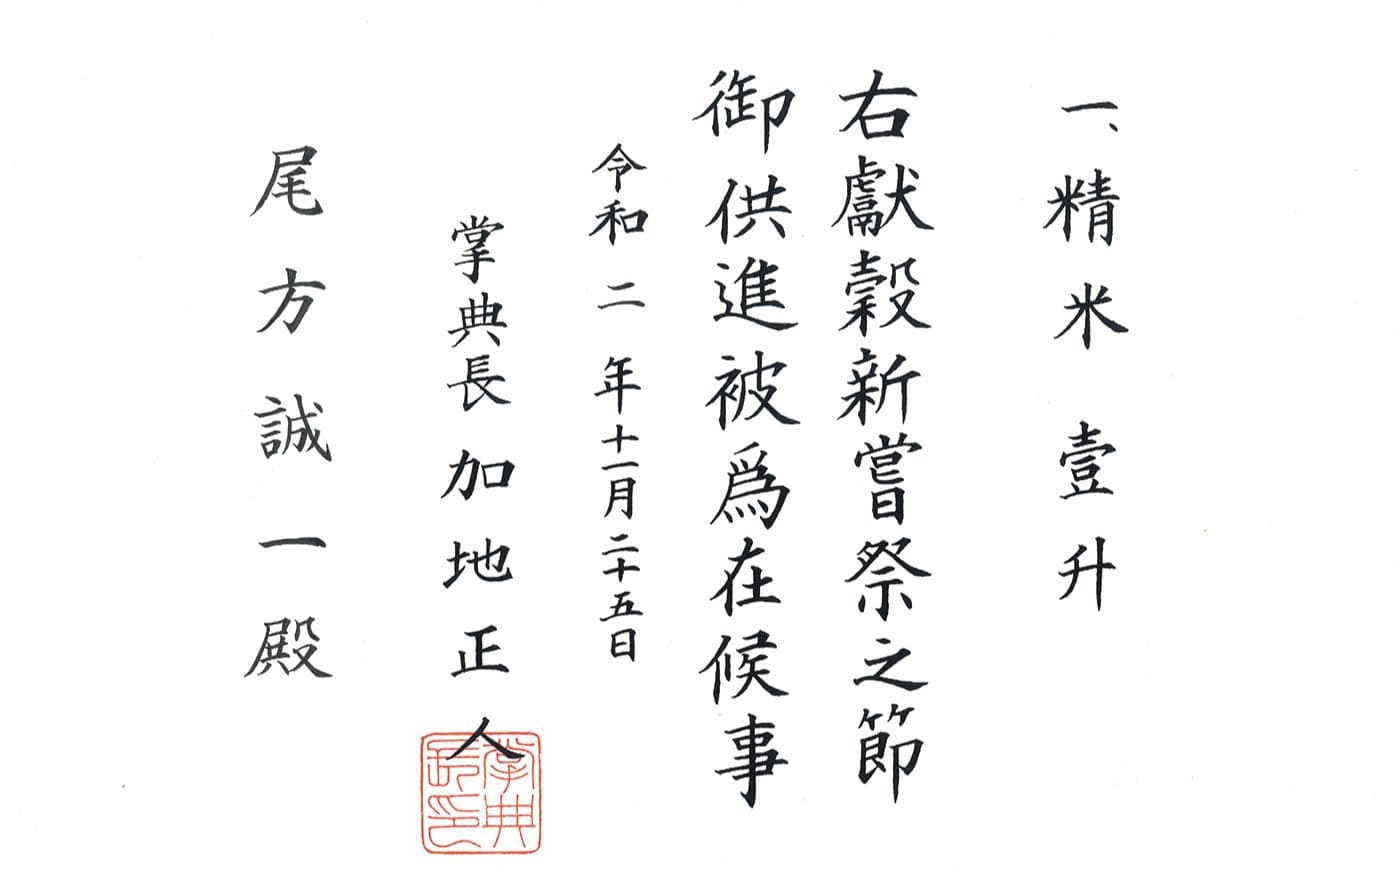 一、精米 壹升
右獻穀新嘗祭之節
御供進被爲在候事
令和二年十一月二十五日
掌典長 加地正人
掌典長印
尾方誠一殿